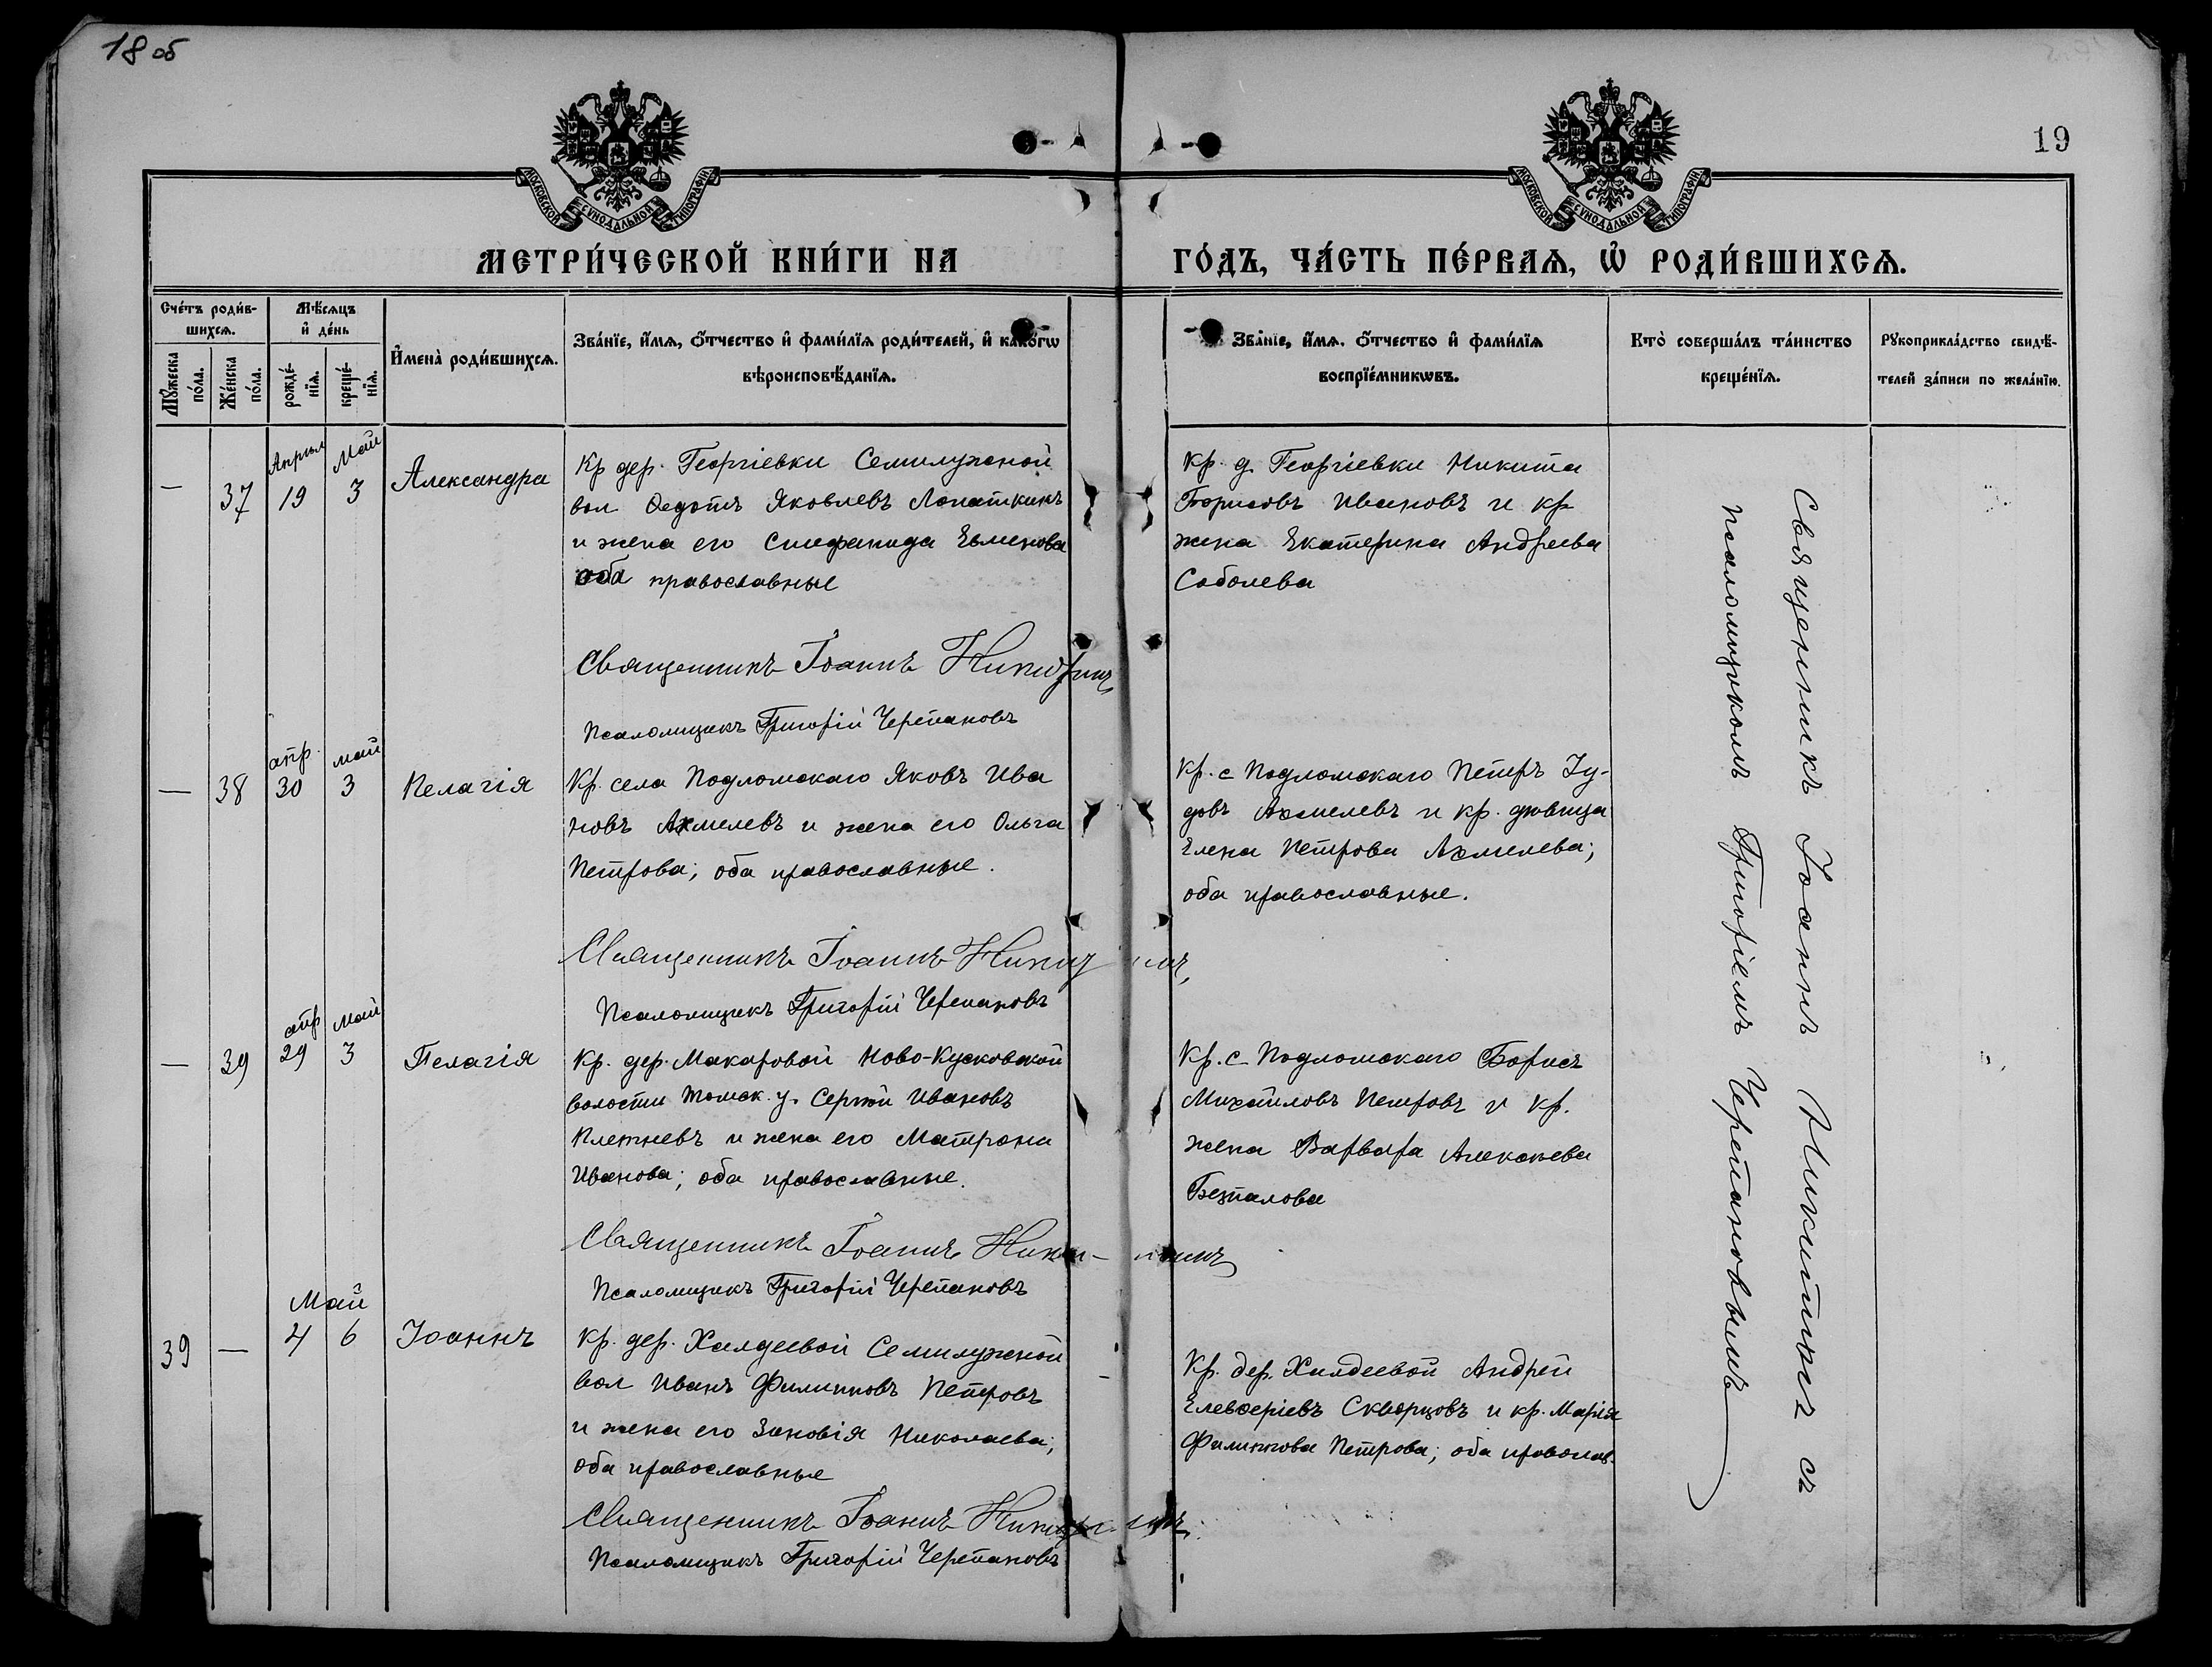 18 об
19
МОСКОВСКОЙ СѴНОДАЛЬНОЙ ТИПОГРАФІИ
МОСКОВСКОЙ СѴНОДАЛЬНОЙ ТИПОГРАФІИ
МЕТРИ́ЧЕСКОЙ КНИ́ГИ НА
ГО́ДЪ, ЧА́СТЬ ПЕ́РВАѦ, Ѡ҆ РОДИ́ВШИХСѦ.
Сче́тъ роди́в-
шихсѧ.
Мꙋ́жеска по́ла.
Же́нска по́ла.
Мѣ́сѧцъ
и҆ де́нь
рожде́-нїѧ.
креще́-нїѧ.
И҆мена̀ роди́вшихсѧ.
Зва́нїе, и҆́мѧ, ѻ҆́тчество и҆ фами́лїѧ роди́телей, и҆ како́гѡ
вѣроисповѣ́данїѧ.
Зва́нїе, и҆́мѧ, ѻ҆́тчество и҆ фами́лїѧ
воспрїе́мникѡвъ.
Кто̀ соверша́лъ та́инство
креще́нїѧ.
Рꙋкоприкла́дство свидѣ́-
телей за́писи по жела́нїю.
Апрѣль Май
— 37 19 3 Александра
Кр дер. Георгіевки Семилужной
вол Ѳедотъ Яковлевъ Лопаткинъ
и жена его Стефанида Евменова
оба православные
Священникъ Іоаннъ Никитинъ
Псаломщикъ Григорій Черепановъ
Кр. д. Георгіевки Никита
Борисовъ Ивановъ и кр
жена Екатерина Андреева
Соболева
апр. май
— 38 30 3 Пелагія
Кр. села Подломскаго Яковъ Ива
новъ Ахмелевъ и жена его Ольга
Петрова; оба православные.
Священникъ Іоаннъ Никитинъ
Псаломщикъ Григорій Черепановъ
Кр. с Подломскаго Петръ Іу-
довъ Ахмелевъ и кр. дѣвица
Елена Петрова Ахмелева;
оба православные.
апр май
— 39 29 3 Пелагія
Кр. дер. Макаровой Ново-Кусковской
волости Томск. у. Сергѣй Ивановъ
Плетневъ и жена его Матрона
Иванова; оба православные.
Священникъ Іоаннъ Никитинъ
Псаломщикъ Григорій Черепановъ
Кр. с Подломскаго Борисъ
Михайловъ Петровъ и кр.
жена Варвара Алексѣева
Безпалова
Май
39 — 4 6 Іоаннъ
Кр. дер. Халдеевой Семилужной
вол Иванъ Филипповъ Петровъ
и жена его Зиновія Николаева;
оба православные
Священникъ Іоаннъ Никитинъ
Псаломщикъ Григорій Черепановъ
Кр. дер. Халдеевой Андрей
Елевѳеріевъ Скворцовъ и кр. Марія
Филиппова Петрова; оба православ.
Священникъ Іоаннъ Никитинъ съ
псаломщикомъ Григоріемъ Черепановымъ